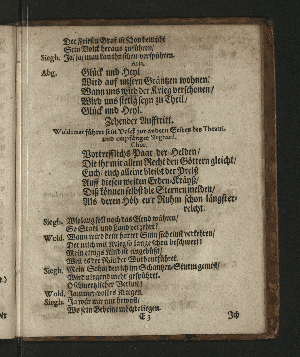 Der Friesen Graf ist schon bemüht
Sein Volck heraus zuführen/
Siegh. Ja/ja/man kan schon verspühren.
Aria.
Abg. Glück und Heyl
Wird auf unsern Gräntzen wohnen.
Wann uns wird der Krieg verschonen/
Wird uns stetig seyn zu Theil/
Glück und Heyl.
Zehender Aufftritt.
Woldemar führet sein Volck zur andern Seiten des Theatri,
und empfänget
Chor.
Vortrefflichs Paar der Helden/
Die ihr mit allem Recht den Göttern gleicht/
Euch/ euch alleine bleibt der Preiß
Auff diesen weiten Erden-Kräyß/
Diß können selbst die Sternen melden/
Als deren Höh eur Ruhm schon längster-
reicht.
Siegh. Wie lang soll noch das Elend währen/
So Stadt und Land verzehrt?
Wold. Wann wird dein harter Sinn sich eins verkehren/
Der mich und Krieg so lange schon beschwert?
Mein eintzigs Kind ist eingebüsst/
Weil es der Räuber Wuth entführet.
Siegh. Mein Sohn den ich im Schantzen-Sturm gemißt/
Wird nirgend mehr gespühret.
O schmertzlicher Verlust!
Wold. Jammer-volles Kriegen.
Siegh. Ja wär mir nur bewust/
Wo sein Gebeine möge liegen.
E 3 Ich